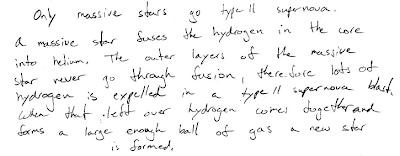 Only massive stars go type II supernova.
A massive star fuses the hydrogen in the core
into helium. The outer layers of the massive
star never go through fusion, therefore lots of
hydrogen is expelled in a type II supernova blast.
When that left over hydrogen comes together and
forms a large enough ball of gas a new star
is formed.